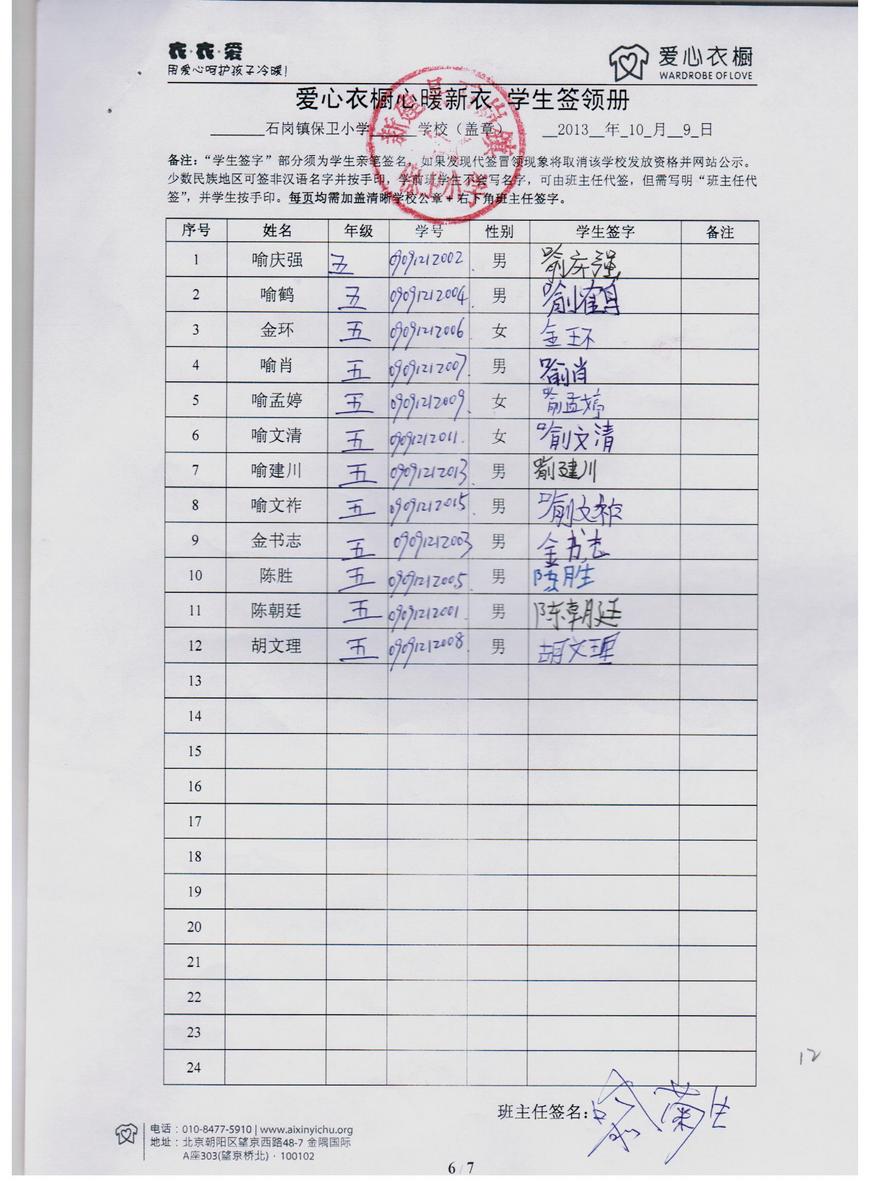 衣·衣·爱
用爱心呵护孩子冷暖!
爱心衣橱
WARDROBE OF LOVE
爱心衣橱心暖新衣 学生签领册
石岗镇保卫小学 学校（盖章） 2013 年 10 月 9 日
备注：“学生签字”部分须为学生亲笔签名，如果发现代签冒领现象将取消该学校发放资格并网站公示。
少数民族地区可签非汉语名字并按手印，学前班学生不会写名字，可由班主任代签，但需写明“班主任代
签”，并学生按手印。每页均需加盖清晰学校公章+右下角班主任签字。
新建县石岗镇
保卫小学
序号 姓名 年级 学号 性别 学生签字 备注
1 喻庆强 五 09091212002 男 喻庆强
2 喻鹤 五 09091212004 男 喻鹤
3 金环 五 09091212006 女 金环
4 喻肖 五 09091212007 男 喻肖
5 喻孟婷 五 09091212009 女 喻孟婷
6 喻文清 五 09091212011 女 喻文清
7 喻建川 五 09091212013 男 喻建川
8 喻文祚 五 09091212015 男 喻文祚
9 金书志 五 09091212003 男 金书志
10 陈胜 五 09091212005 男 陈胜
11 陈朝廷 五 09091212001 男 陈朝廷
12 胡文理 五 09091212008 男 胡文理
13
14
15
16
17
18
19
20
21
22
23
24
12
班主任签名：
电话：010-8477-5910 | www.aixinyichu.org
地址：北京朝阳区望京西路48-7 金隅国际
A座303(望京桥北)·100102
6 / 7